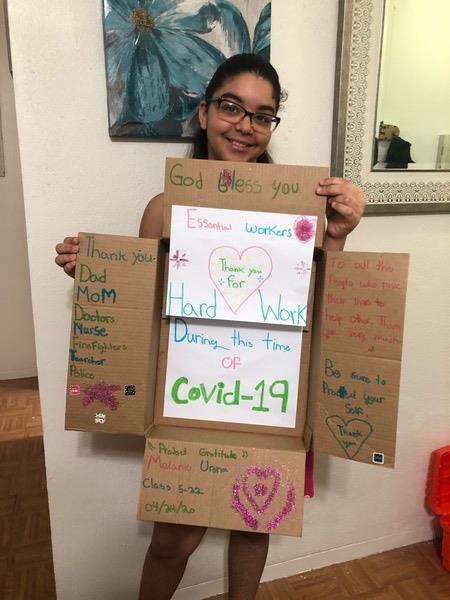 God bless you
Essential Workers
Thank you
For
Hard Work
During this time
OF
Covid-19
Thank you
Dad
MoM
Doctors
Nurse
Firefighters
Teacher
Police
To all the
People who risk
their lives to
help other. Thank
you very much
Be sure to
Protect your
Self.
Thank
you
"Project Gratitude"
Melanie
Class 5-22
04/24/20